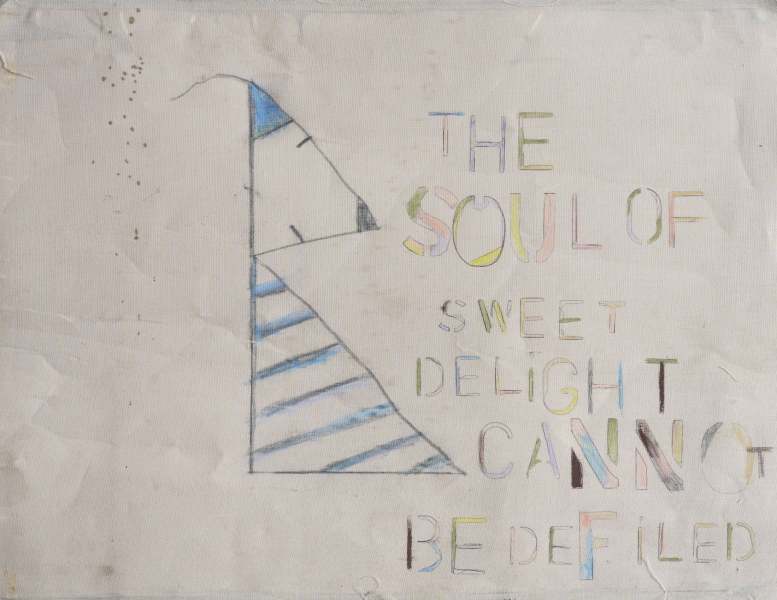 THE
SOUL OF
SWEET
DELIGHT
CANNOT
BE DEFILED